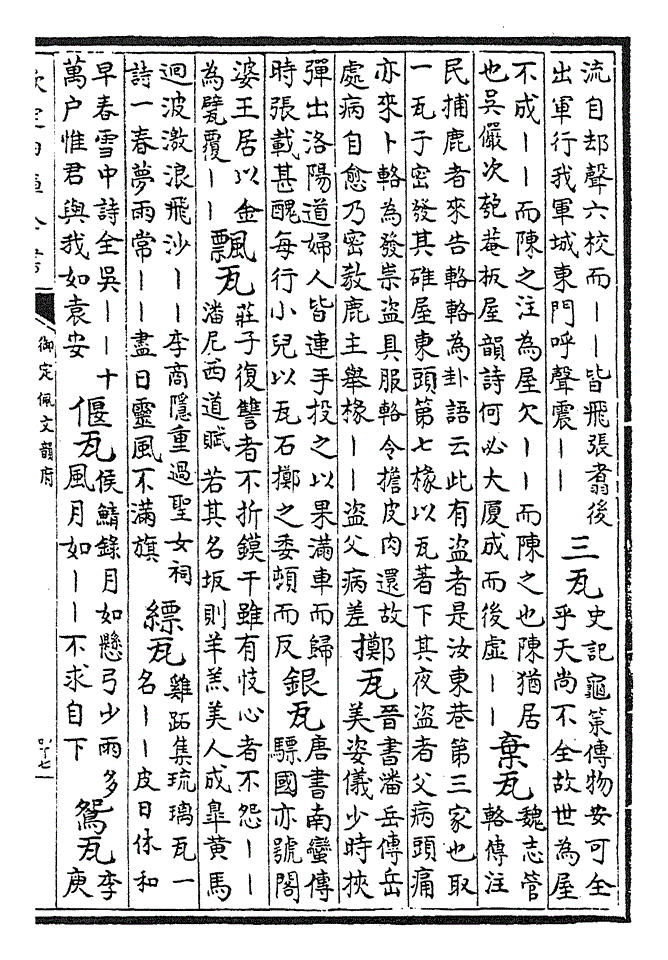 流自却聲六校而｜｜皆飛張翥後
出軍行我軍城東門呼聲震｜｜
三瓦
史記龜策傳物安可全
乎天尚不全故世為屋
不成｜｜而陳之注為屋欠｜｜而陳之也陳猶居
也吳儼次匏菴板屋韻詩何必大厦成而後虛｜｜
棄瓦
魏志管
輅傳注
民捕鹿者來告輅輅為卦語云此有盗者是汝東巷第三家也取
一瓦于密發其碓屋東頭第七椽以瓦著下其夜盗者父病頭痛
亦來卜輅為發祟盗具服輅令擔皮肉還故
處病自愈乃密教鹿主舉椽｜｜盗父病差
擲瓦
晉書潘岳傳岳
美姿儀少時挾
彈出洛陽道婦人皆連手投之以果滿車而歸
時張載甚醜每行小兒以瓦石擲之委頓而反
銀瓦
唐書南蠻傳
驃國亦號闍
婆王居以金
為甓覆｜｜
飄瓦
莊子復讐者不折鏌干雖有忮心者不怨｜｜
潘尼西道賦若其名坂則羊羔美人成臯黄馬
迴波激浪飛沙｜｜李商隱重過聖女祠
詩一春夢雨常｜｜盡日靈風不滿旗
縹瓦
雞跖集琉璃瓦一
名｜｜皮日休和
早春雪中詩全吳｜｜十
萬户惟君與我如袁安
偃瓦
侯鯖錄月如懸弓少雨多
風月如｜｜不求自下
鴛瓦
李
庾
御定佩文韻府